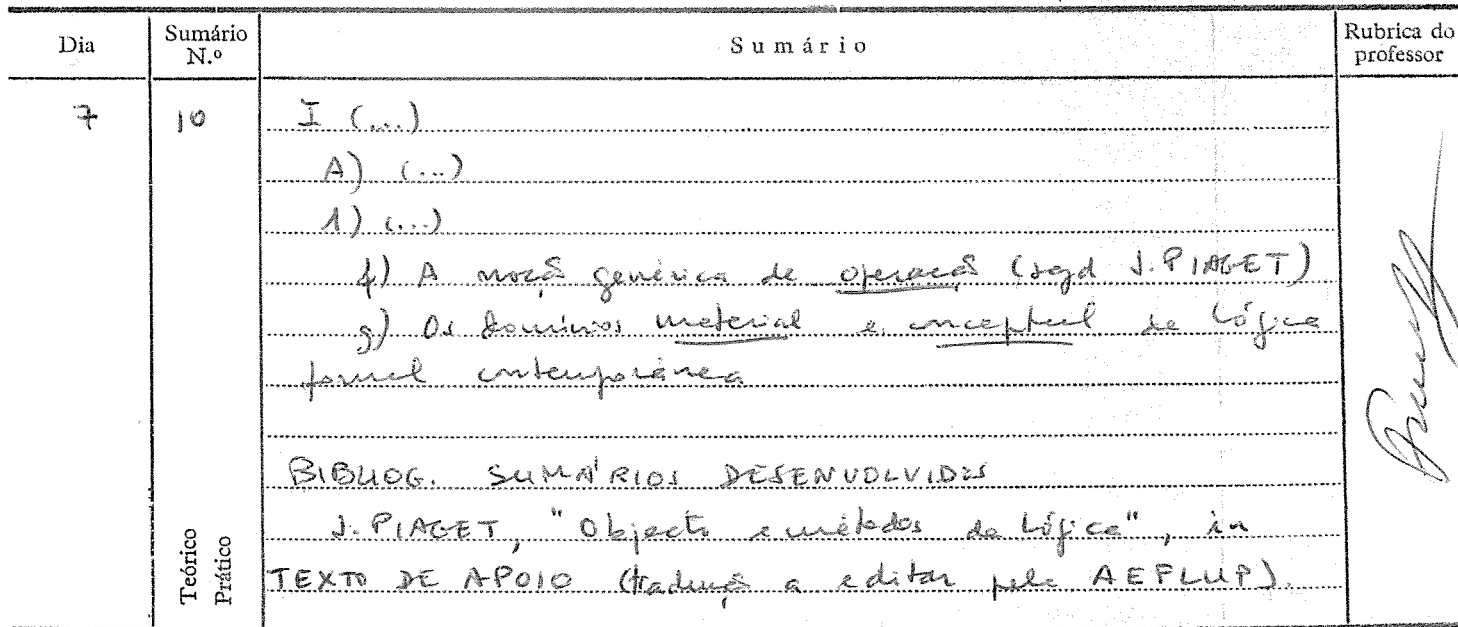 Dia
Sumário N.º
Sumário
Rubrica do professor
7
10
I (...)
A) (...)
1) (...)
f) A noção genérica de operação (segd J. PIAGET)
g) Os domínios material e conceptual da Lógica
formal contemporânea
BIBLIOG. SUMÁRIOS DESENVOLVIDOS
J. PIAGET, "Objecto e métodos da Lógica", in
TEXTO DE APOIO (tradução a editar pela AEFLUP).
Teórico
Prático